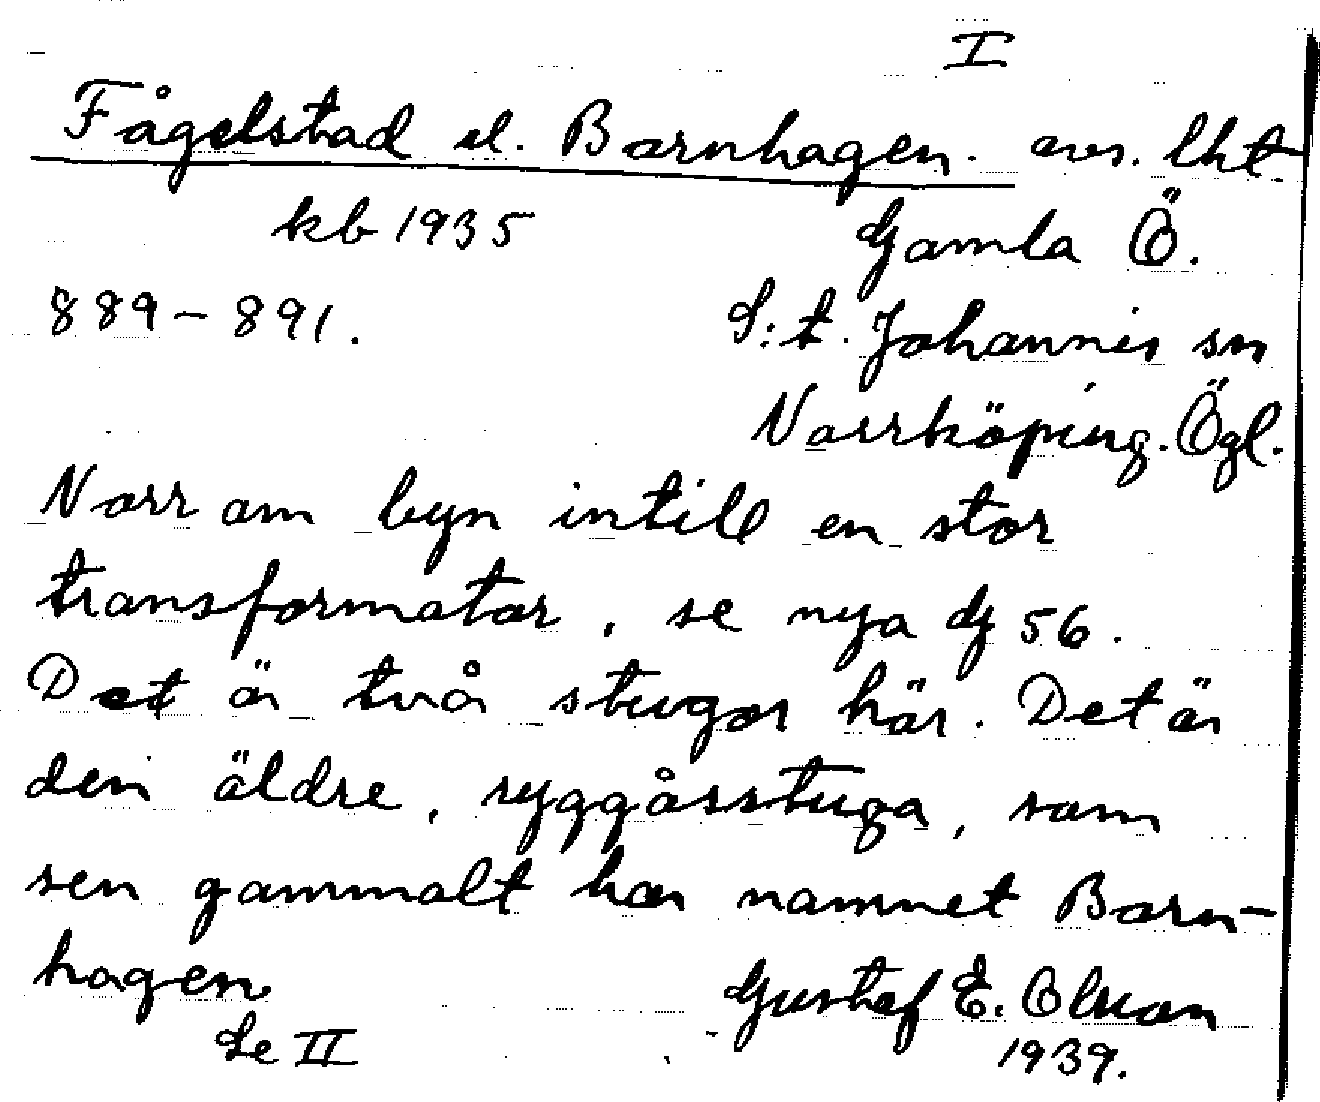 I
Fågelstad el. Barnhagen. avs. lht.
kb 1935 Gamla Ö.
889-891. S:t. Johannis sn
Norrköping. Ögl.
Norr om byn intill en stor
transformator, se nya dj 56.
Det är två stugor här. Det är
den äldre, ryggåsstuga, som
sen gammalt har namnet Barn-
hagen.
Se II Gustaf E. Olsson
1939.